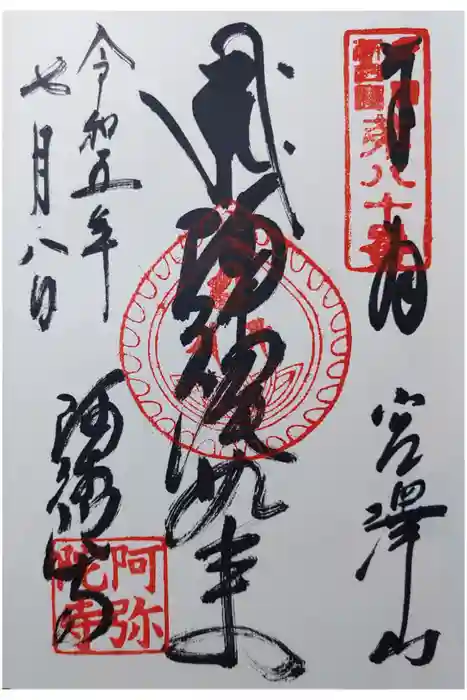 奉拝
第八十番
宮澤山
阿弥陀如来
令和五年
七月八日
阿弥陀寺
阿弥
陀寺